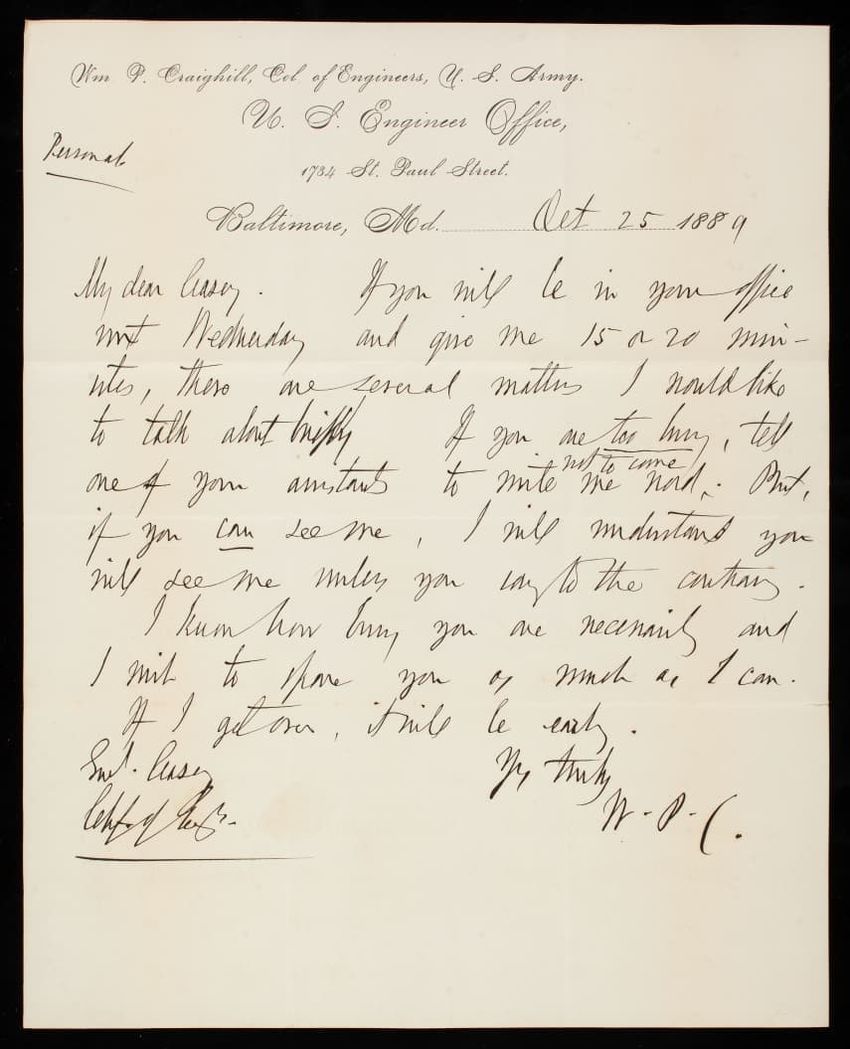 Wm P. Craighill, Col of Engineers, U. S. Army.
U. S. Engineer Office,
Personal
1734 St. Paul Street.
Baltimore, Md. Oct 25 1889
My dear Casey. If you will be in your office
next Wednesday and give me 15 or 20 min-
utes, there are several matters I would like
to talk about briefly If you are too busy, tell
not to come
one of your assistants to write me word. But,
if you can see me, I will understand you
will see me unless you say to the contrary.
I know how busy you are necessarily and
I wish to spare you as much as I can.
If I get over, it will be early.
Genl. Casey Yrs truly
Chf. of Engrs. W. P. C.